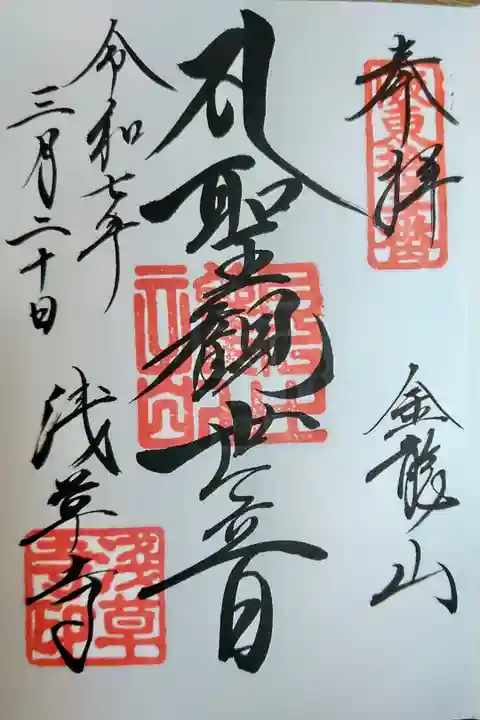 奉拝
金龍山
聖観世音
令和七年
三月二十日
浅草寺
浅草寺印